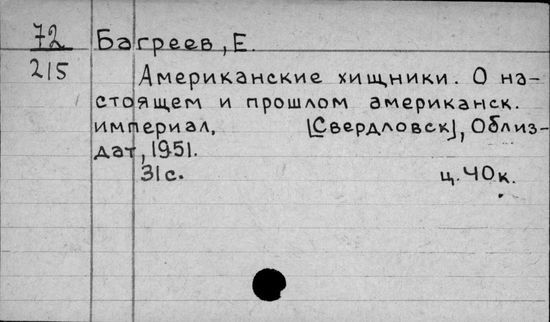 72 Багреев, Е.
215 Американские хищники. О на-
стоящем и прошлом американск.
империал. [Свердловск], Облиз-
дат, 1951.
31с. ц. 40к.